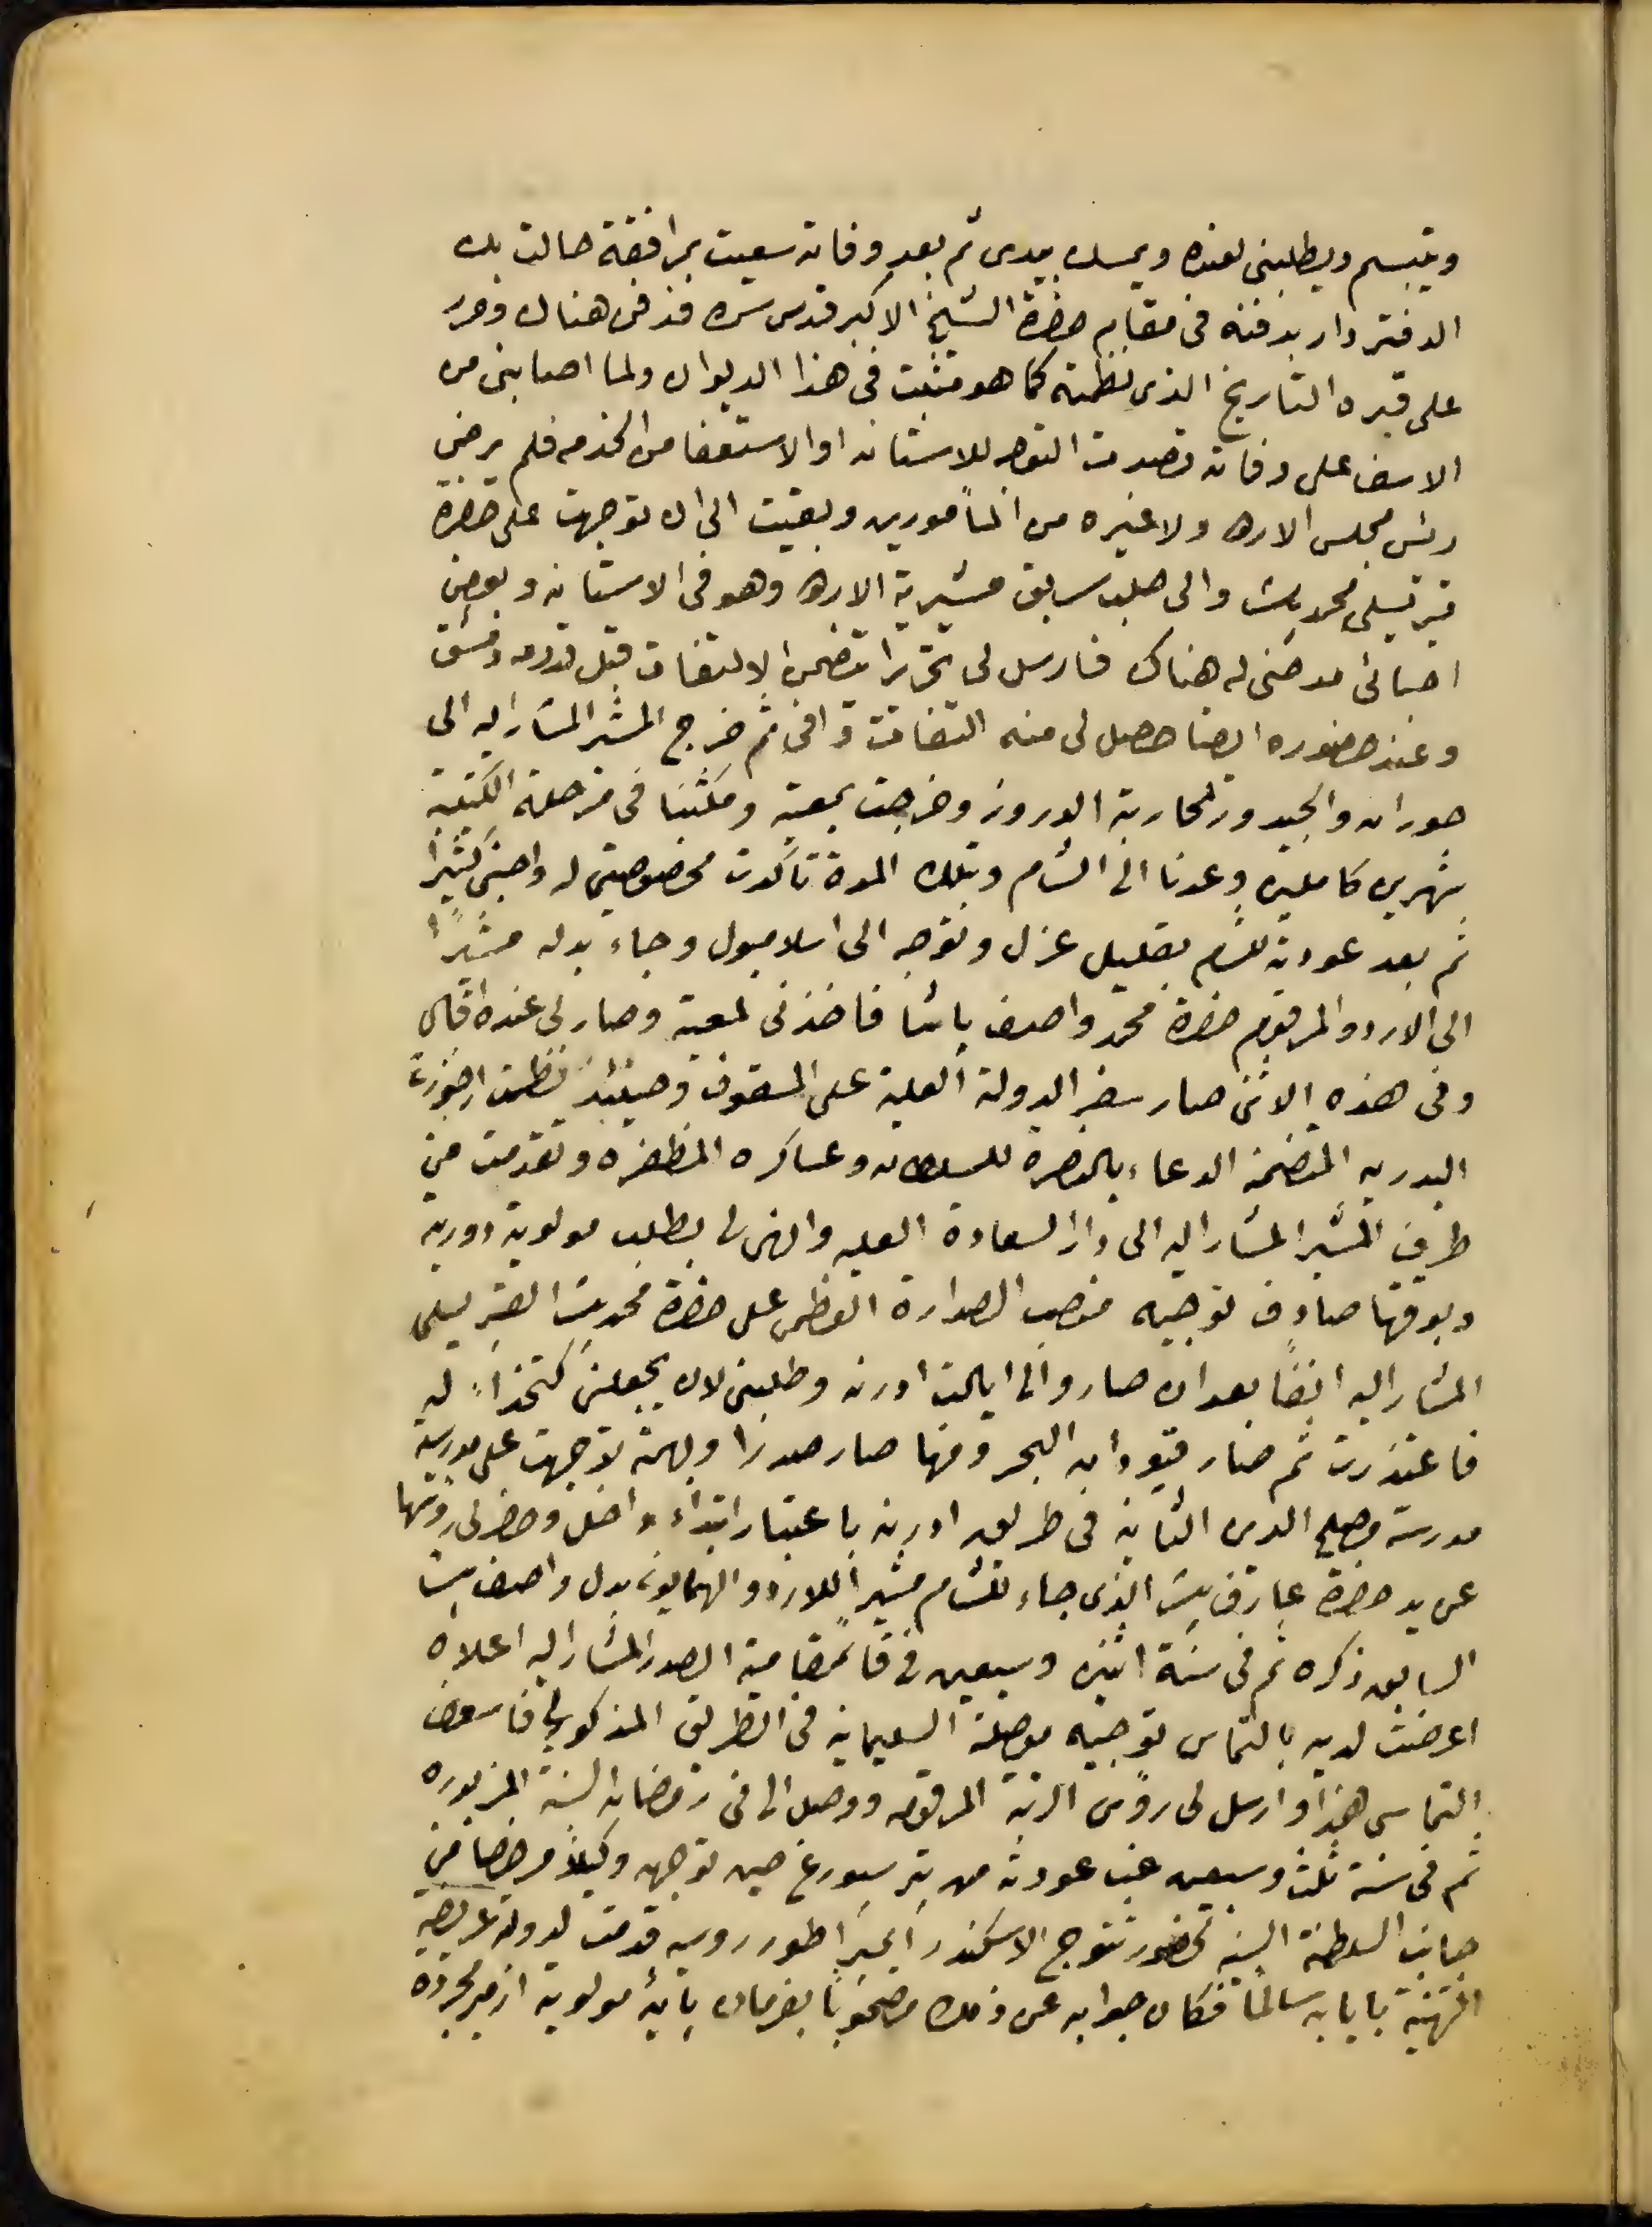 ويتبسم ويطلبني لعنده ويمسك بيدي ثم بعد وفاته سعيت بمرافقة حالت بك
الدفتردار بدفنه في مقام حضرة الشيخ الاكبر قدس سره فدفن هناك وحرر
على قبره التاريخ الذي نظمته كما هو مثبت في هذا الديوان ولما اصابني من
الاسف على وفاته قصدت التوجه للاستانه او الاستعفا من الخدمه فلم يرضى
رئس مجلس الاردو ولا غيره من المأمورين وبقيت الى ان توجهت على حضرة
قبرسلي محمد باشا والي حلب سابق مشيرية الاردو وهو في الاستانه وبعض
احبائي مدحني له هناك فارسل لي تحريرا يتضمن الالتفات قبل قدومه دمشق
وعند حضوره ايضا حصل لي منه التفات وافي ثم خرج المشير المشار اليه الى
حوران والجيدور لمحاربة الدروز وخرجت بمعيته ومكثنا في مرحلة الكتيبة
شهرين كاملين وعدنا الى الشام وبتلك المدة تأكدت مخصوصيتي له واحبني كثيرا
ثم بعد عودته للشام بقليل عزل وتوجه الى اسلامبول وجاء بدله مشيرًا
الى الاردو المرقوم حضرة محمد واصف باشا فاخذني لمعيته وصار لي عنده اقبال
وفي هذه الاثنى صار سفر الدولة العلية على المسقوف وحينئذ نظمت ارجوزت
البدريه المتضمنه الدعاء بالنصرة للسلطان وعساكره المظفره وتقدمت من
طرف المشير المشار اليه الى دار السعادة العليه وانهى لي بطلب مولوية دورية
وبوقتها صادف توجيه منصب الصدارة العظمى على حضرة محمد باشا القبرسلي
المشار اليه ايضًا بعد ان صار والي ايالت ادرنه وطلبني لان يجعلني كتخداءً له
فاعتذرت ثم صار قبودان البحر ومنها صار صدرا وبهمته توجهت علي مدرسية
مدرسة مصلح الدين الثانيه في طريق ادرنه باعتبار ابتداء داخل وحضر لي رؤسها
عن يد حضرة عارف باشا الذي جاء للشام مشيرًا للاردو الهمايوني بدل واصف باشا
السابق ذكره ثم في سنة اثنين وسبعين في قائمقامية الصدر المشار اليه اعلاه
اعرضت لديه بالتماس توجيه موصلة السليمانيه في الطريق المذكور لي فاسعف
التماسي هذا وارسل لي رؤس الرتبة المرقومه ووصل الي في رمضان السنة المزبوره
ثم في سنة ثلث وسبعين غب عودته من بترسبورغ حين توجه وكيلاً مرخصا من
جانب السلطنة السنيه لحضور تتوج الاسكندر ايمبراطور روسيه قدمت لدولته عريضة
التهنية بايابه سالمًا فكان جوابه عن ذلك مصحوبًا بفرمان باية مولوية ازمير مجردة